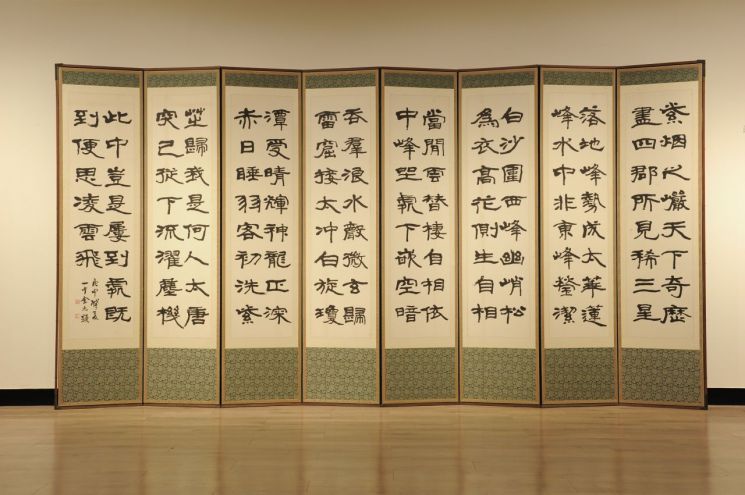 紫烟之巖天下奇歷
畫四郡所見稀三星
落地峰勢成太華蓮
峰水中非東峰瑩潔
白沙圍西峰幽峭松
為衣高花側生自相
當閒雲替棲自相依
中峰罡氣下嵌空暗
吞羣浪水聲微玄歸
雷窟接太冲白旋瓊
潭愛晴輝神龍正深
赤日睡羽客初洗紫
歸我是何人太唐
突已從下流濯塵機
此中豈是屢到處既
到便思凌雲飛
一中金忠顯